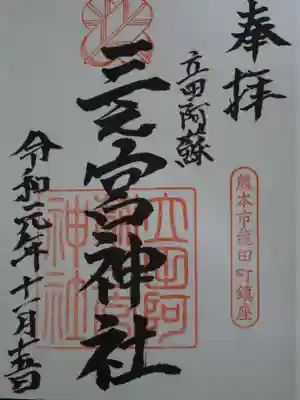 奉拝
熊本市龍田町鎮座
立田阿蘇
三宮神社
立田阿蘇三宮神社
令和元年十一月十五日